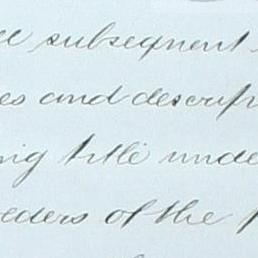 subsequent
and descrip
ing title unde
eeders of the